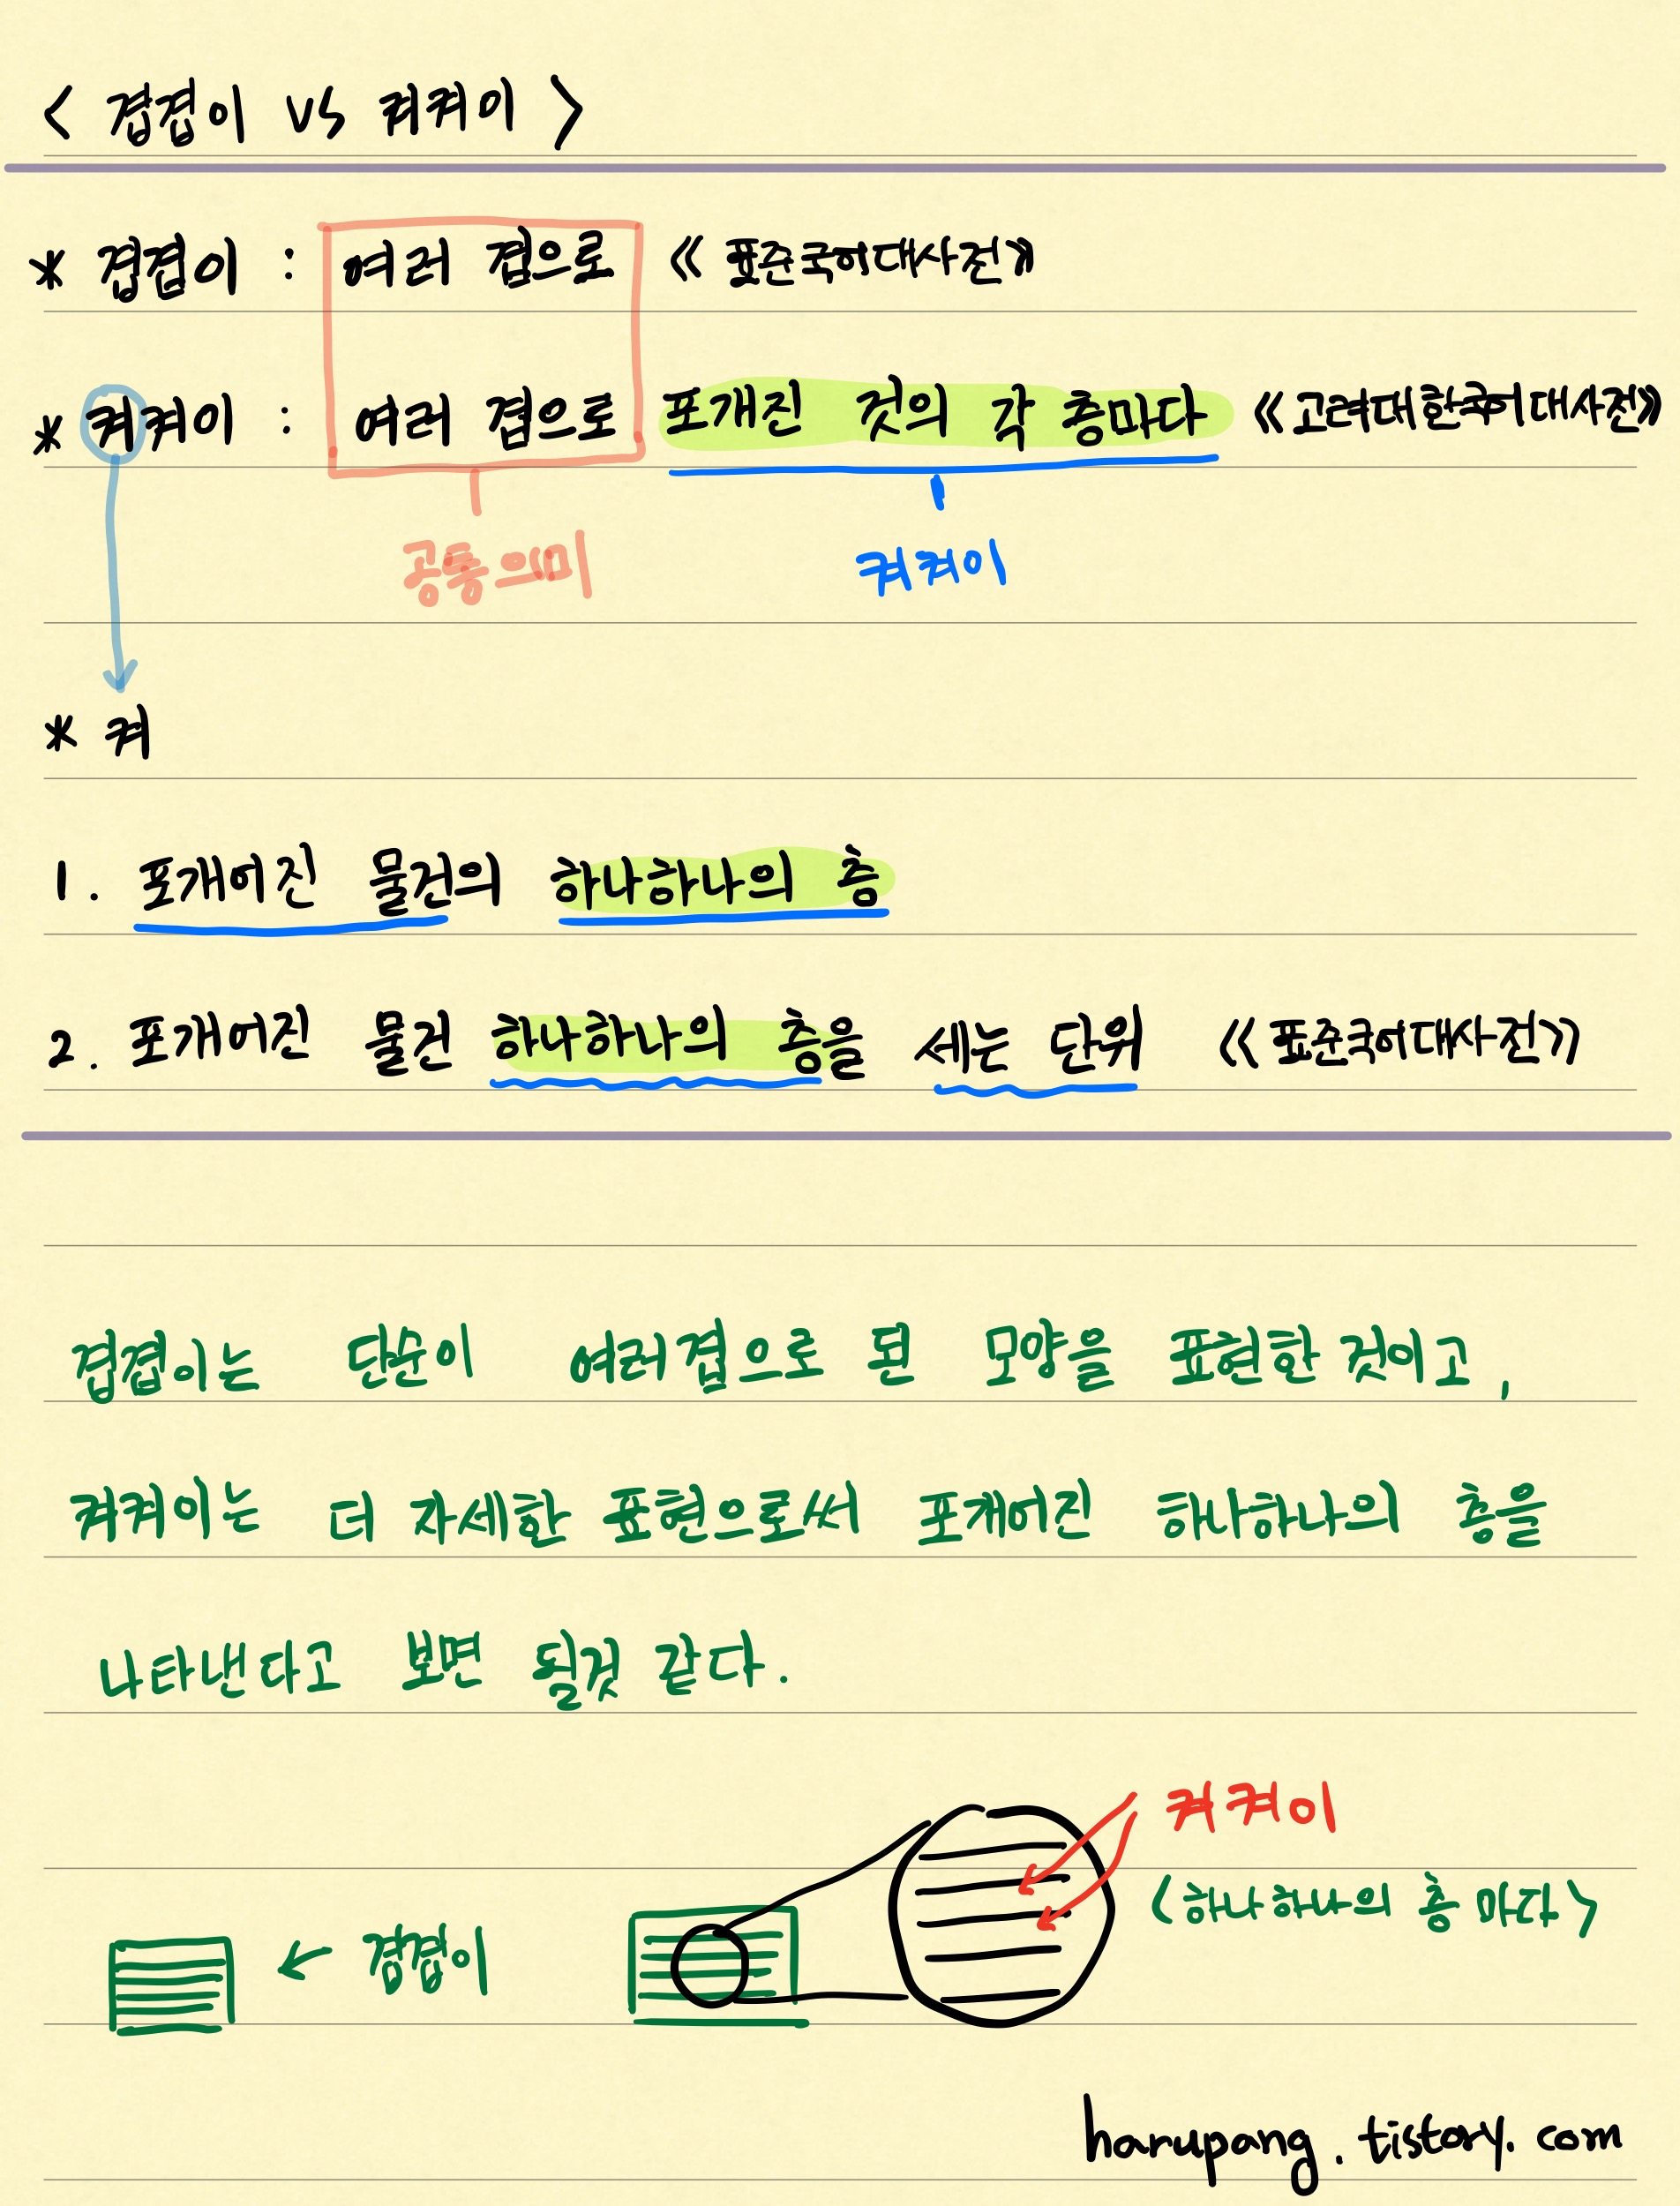 < 겹겹이 vs 켜켜이 >
* 겹겹이 : 여러 겹으로 《 표준국어대사전》
* 켜켜이 : 여러 겹으로 포개진 것의 각 층마다 《고려대한국어대사전》
공통의미 켜켜이
* 켜
1. 포개어진 물건의 하나하나의 층
2. 포개어진 물건 하나하나의 층을 세는 단위 《표준국어대사전》
겹겹이는 단순이 여러겹으로 된 모양을 표현한 것이고,
켜켜이는 더 자세한 표현으로써 포개어진 하나하나의 층을
나타낸다고 보면 될것 같다.
켜켜이
<하나하나의 층 마다>
← 겹겹이
harupang.tistory.com